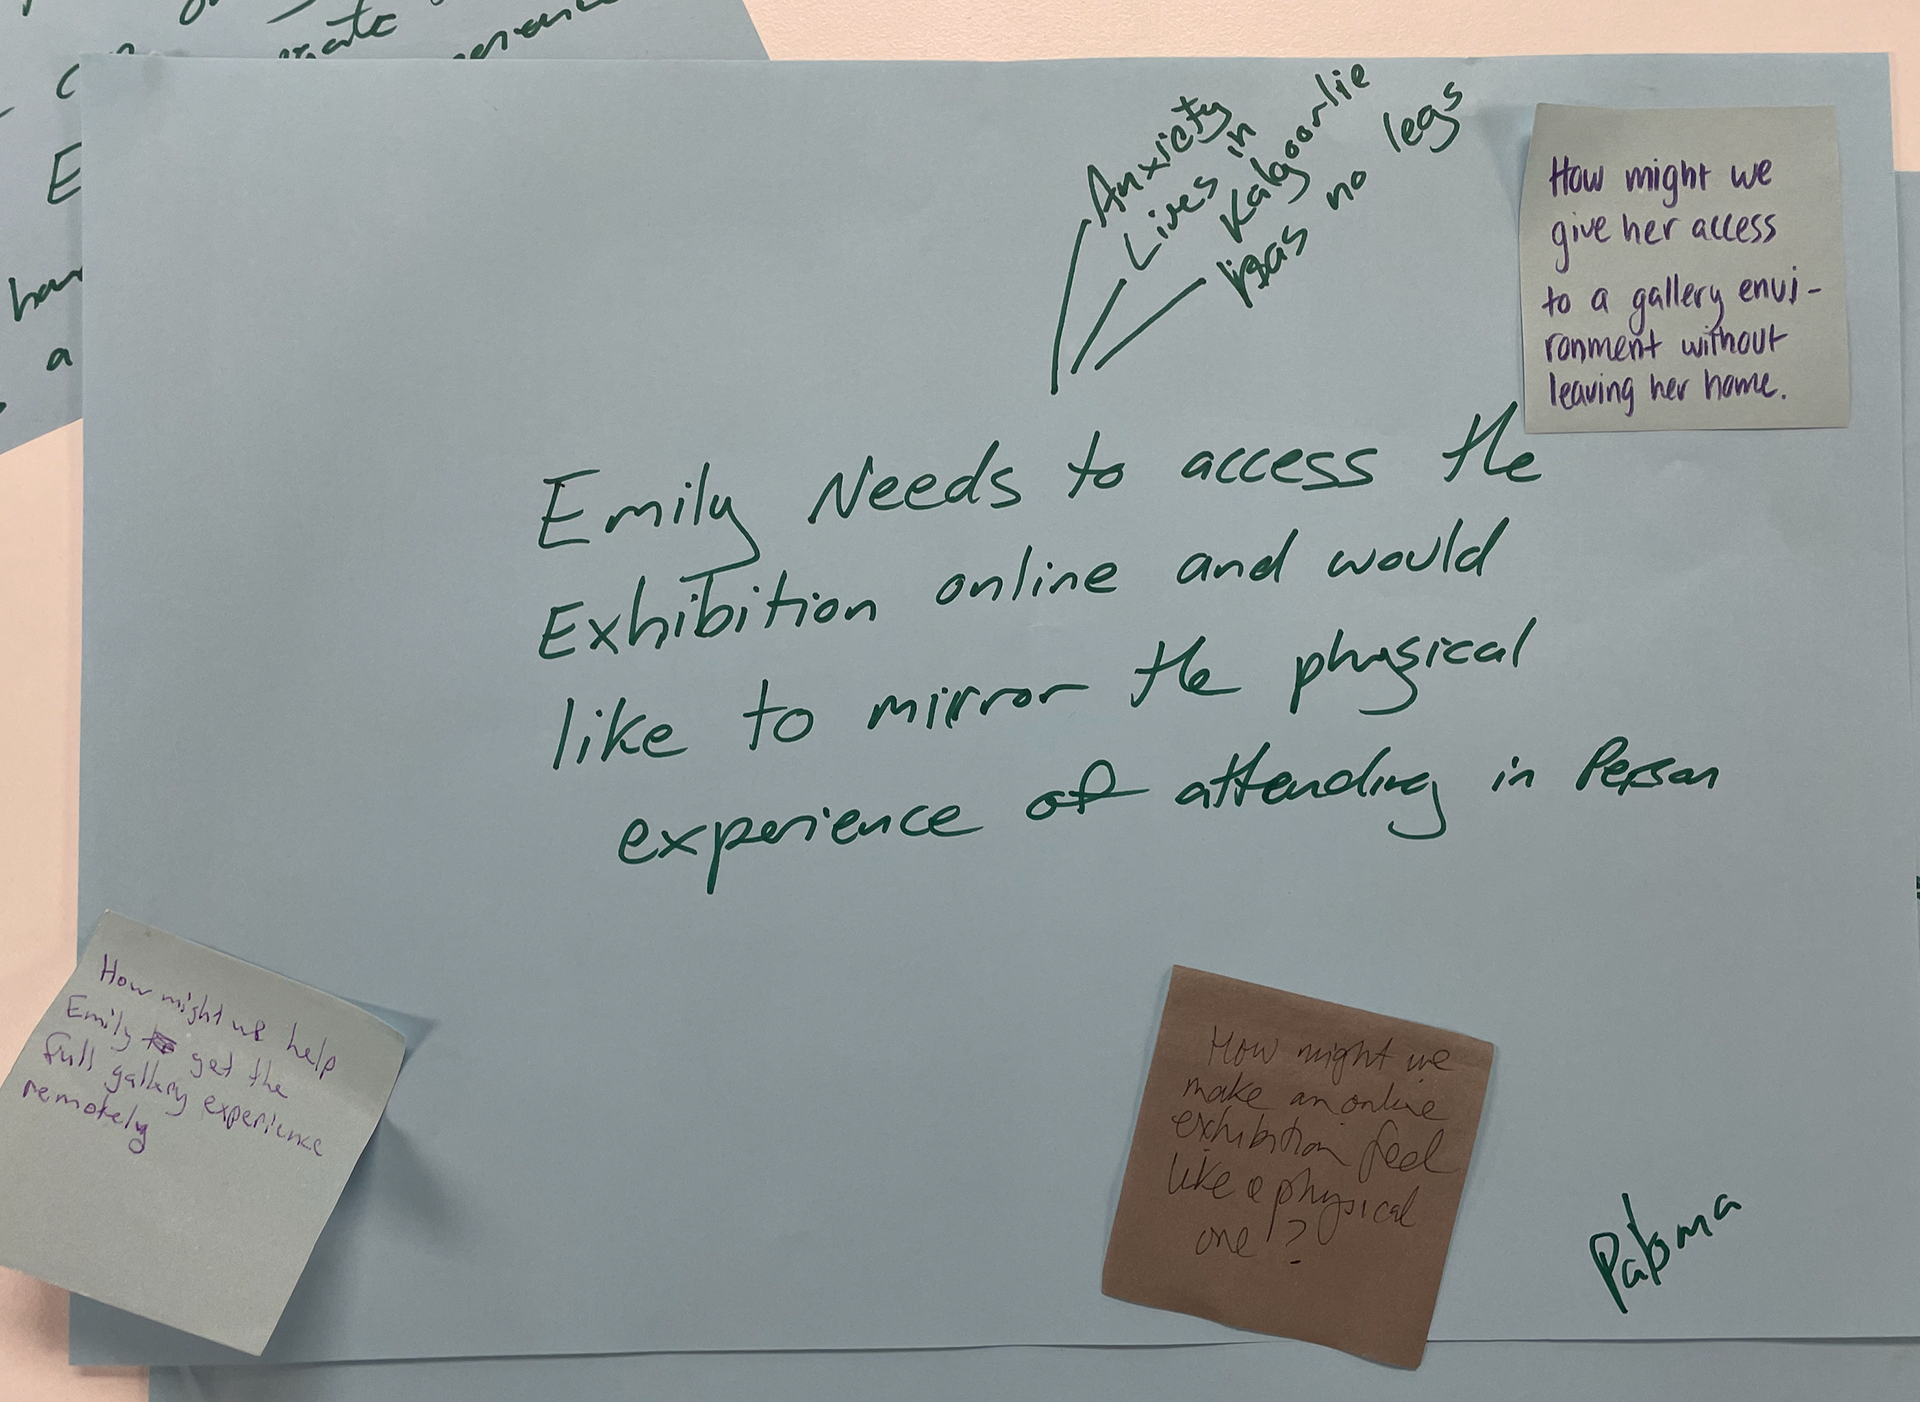 Anxiety
Lives in
Kalgoorlie
Has no legs
How might we
give her access
to a gallery envi-
ronment without
leaving her home.
Emily Needs to access the
Exhibition online and would
like to mirror the physical
experience of attending in Person
How might we help
Emily get the
full gallery experience
remotely
How might we
make an online
exhibition feel
like a physical
one?
Paloma